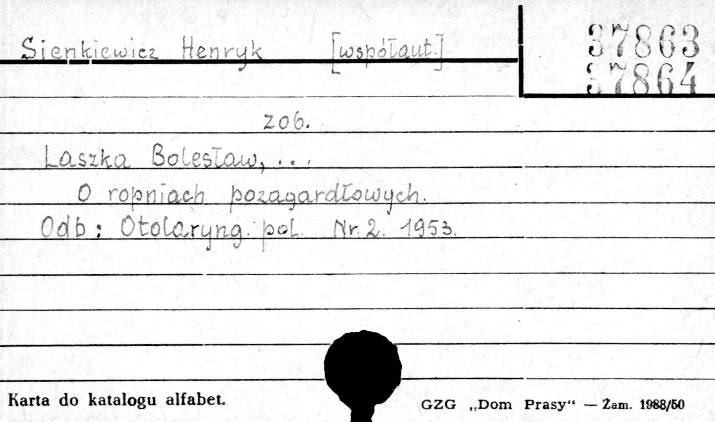 Sienkiewicz Henryk [współaut.]
37863
37864
zob.
Laszka Bolesław, ...
O ropniach pozagardłowych.
Odb: Otolaryng. pol. Nr. 2. 1953.
Karta do katalogu alfabet.
GZG „Dom Prasy“ — Zam. 1988/50